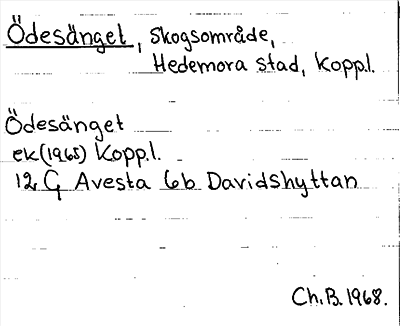 Ödesänget, Skogsområde,
Hedemora stad, Koppl.
Ödesänget
ek(1965) Koppl.
12 G Avesta 6b Davidshyttan
Ch.B. 1968.